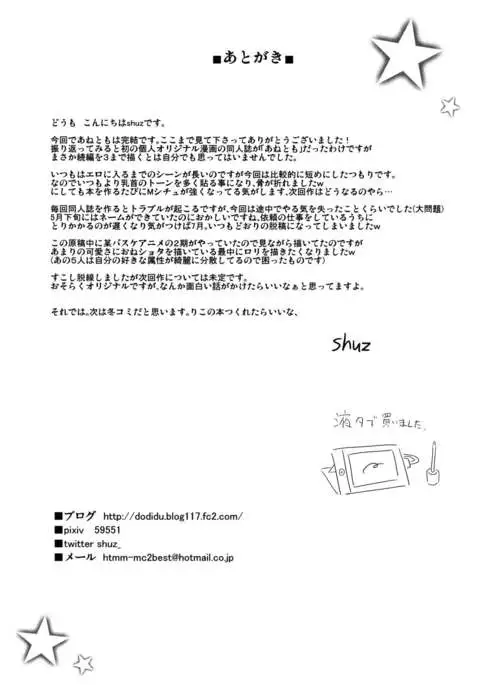 ■あとがき■
どうも こんにちはshuzです。
今回であねともは完結です。ここまで見て下さってありがとうございました！
振り返ってみると初の個人オリジナル漫画の同人誌が「あねとも」だったわけですが
まさか続編を３まで描くとは自分でも思ってはいませんでした。
いつもはエロに入るまでのシーンが長いのですが今回は比較的に短めにしたつもりです。
なのでいつもより乳首のトーンを多く貼る事になり、骨が折れましたw
にしても本を作るたびにMシチュが強くなってる気がします、次回作はどうなるのやら…
毎回同人誌を作るとトラブルが起こるですが、今回は途中でやる気を失ったことくらいでした(大問題)
5月下旬にはネームができていたのにおかしいですね、依頼の仕事をしているうちに
とりかかるのが遅くなり気がつけば7月。いつもどおりの脱稿になってしまいましたw
この原稿中に某バスケアニメの２期がやっていたので見ながら描いてたのですが
あまりの可愛さにおねショタを描いている最中にロリを描きたくなりましたw
(あの５人は自分の好きな属性が綺麗に分散してるので困ったものです)
すこし脱線しましたが次回作については未定です。
おそらくオリジナルですが、なんか面白い話がかけたらいいなぁと思ってますよ。
それでは。次は冬コミだと思います。りこの本つくれたらいいな、
shuz
液タブ買いました.
■ブログ http://dodidu.blog117.fc2.com/
■pixiv 59551
■twitter shuz_
■メール htmm-mc2best@hotmail.co.jp